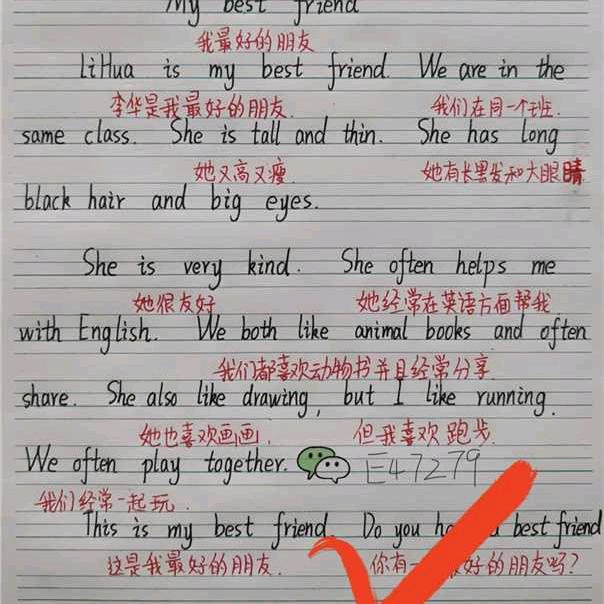 My best friend
我最好的朋友
LiHua is my best friend. We are in the
李华是我最好的朋友. 我们在同一个班.
same class. She is tall and thin. She has long
她又高又瘦. 她有长黑发和大眼睛
black hair and big eyes.
She is very kind. She often helps me
她很友好 她经常在英语方面帮我
with English. We both like animal books and often
我们都喜欢动物书并且经常分享
share. She also like drawing, but I like running.
她也喜欢画画, 但我喜欢跑步.
We often play together. E47279
我们经常一起玩.
This is my best friend. Do you a best friend
这是我最好的朋友. 你有一 好的朋友吗?